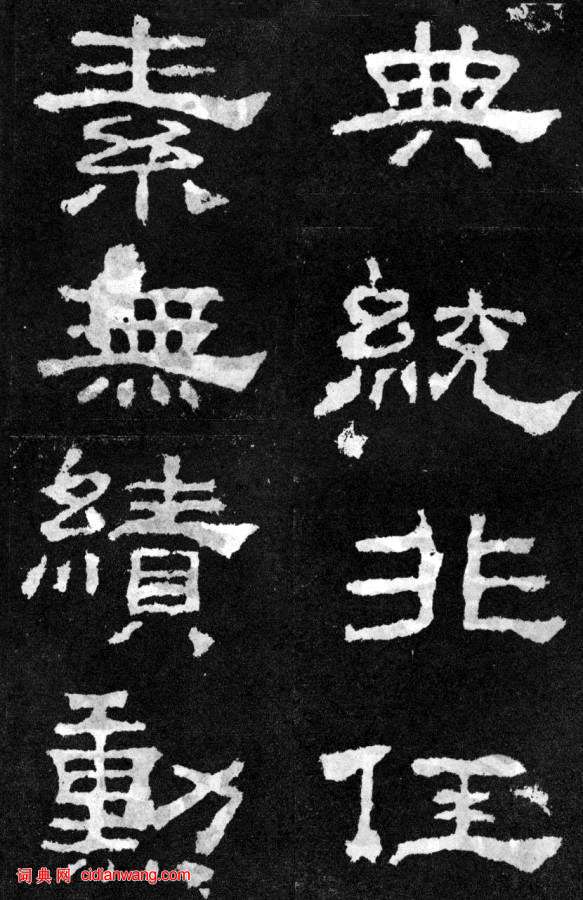 典統非任
素無績勲
词典网 cidianwang.com